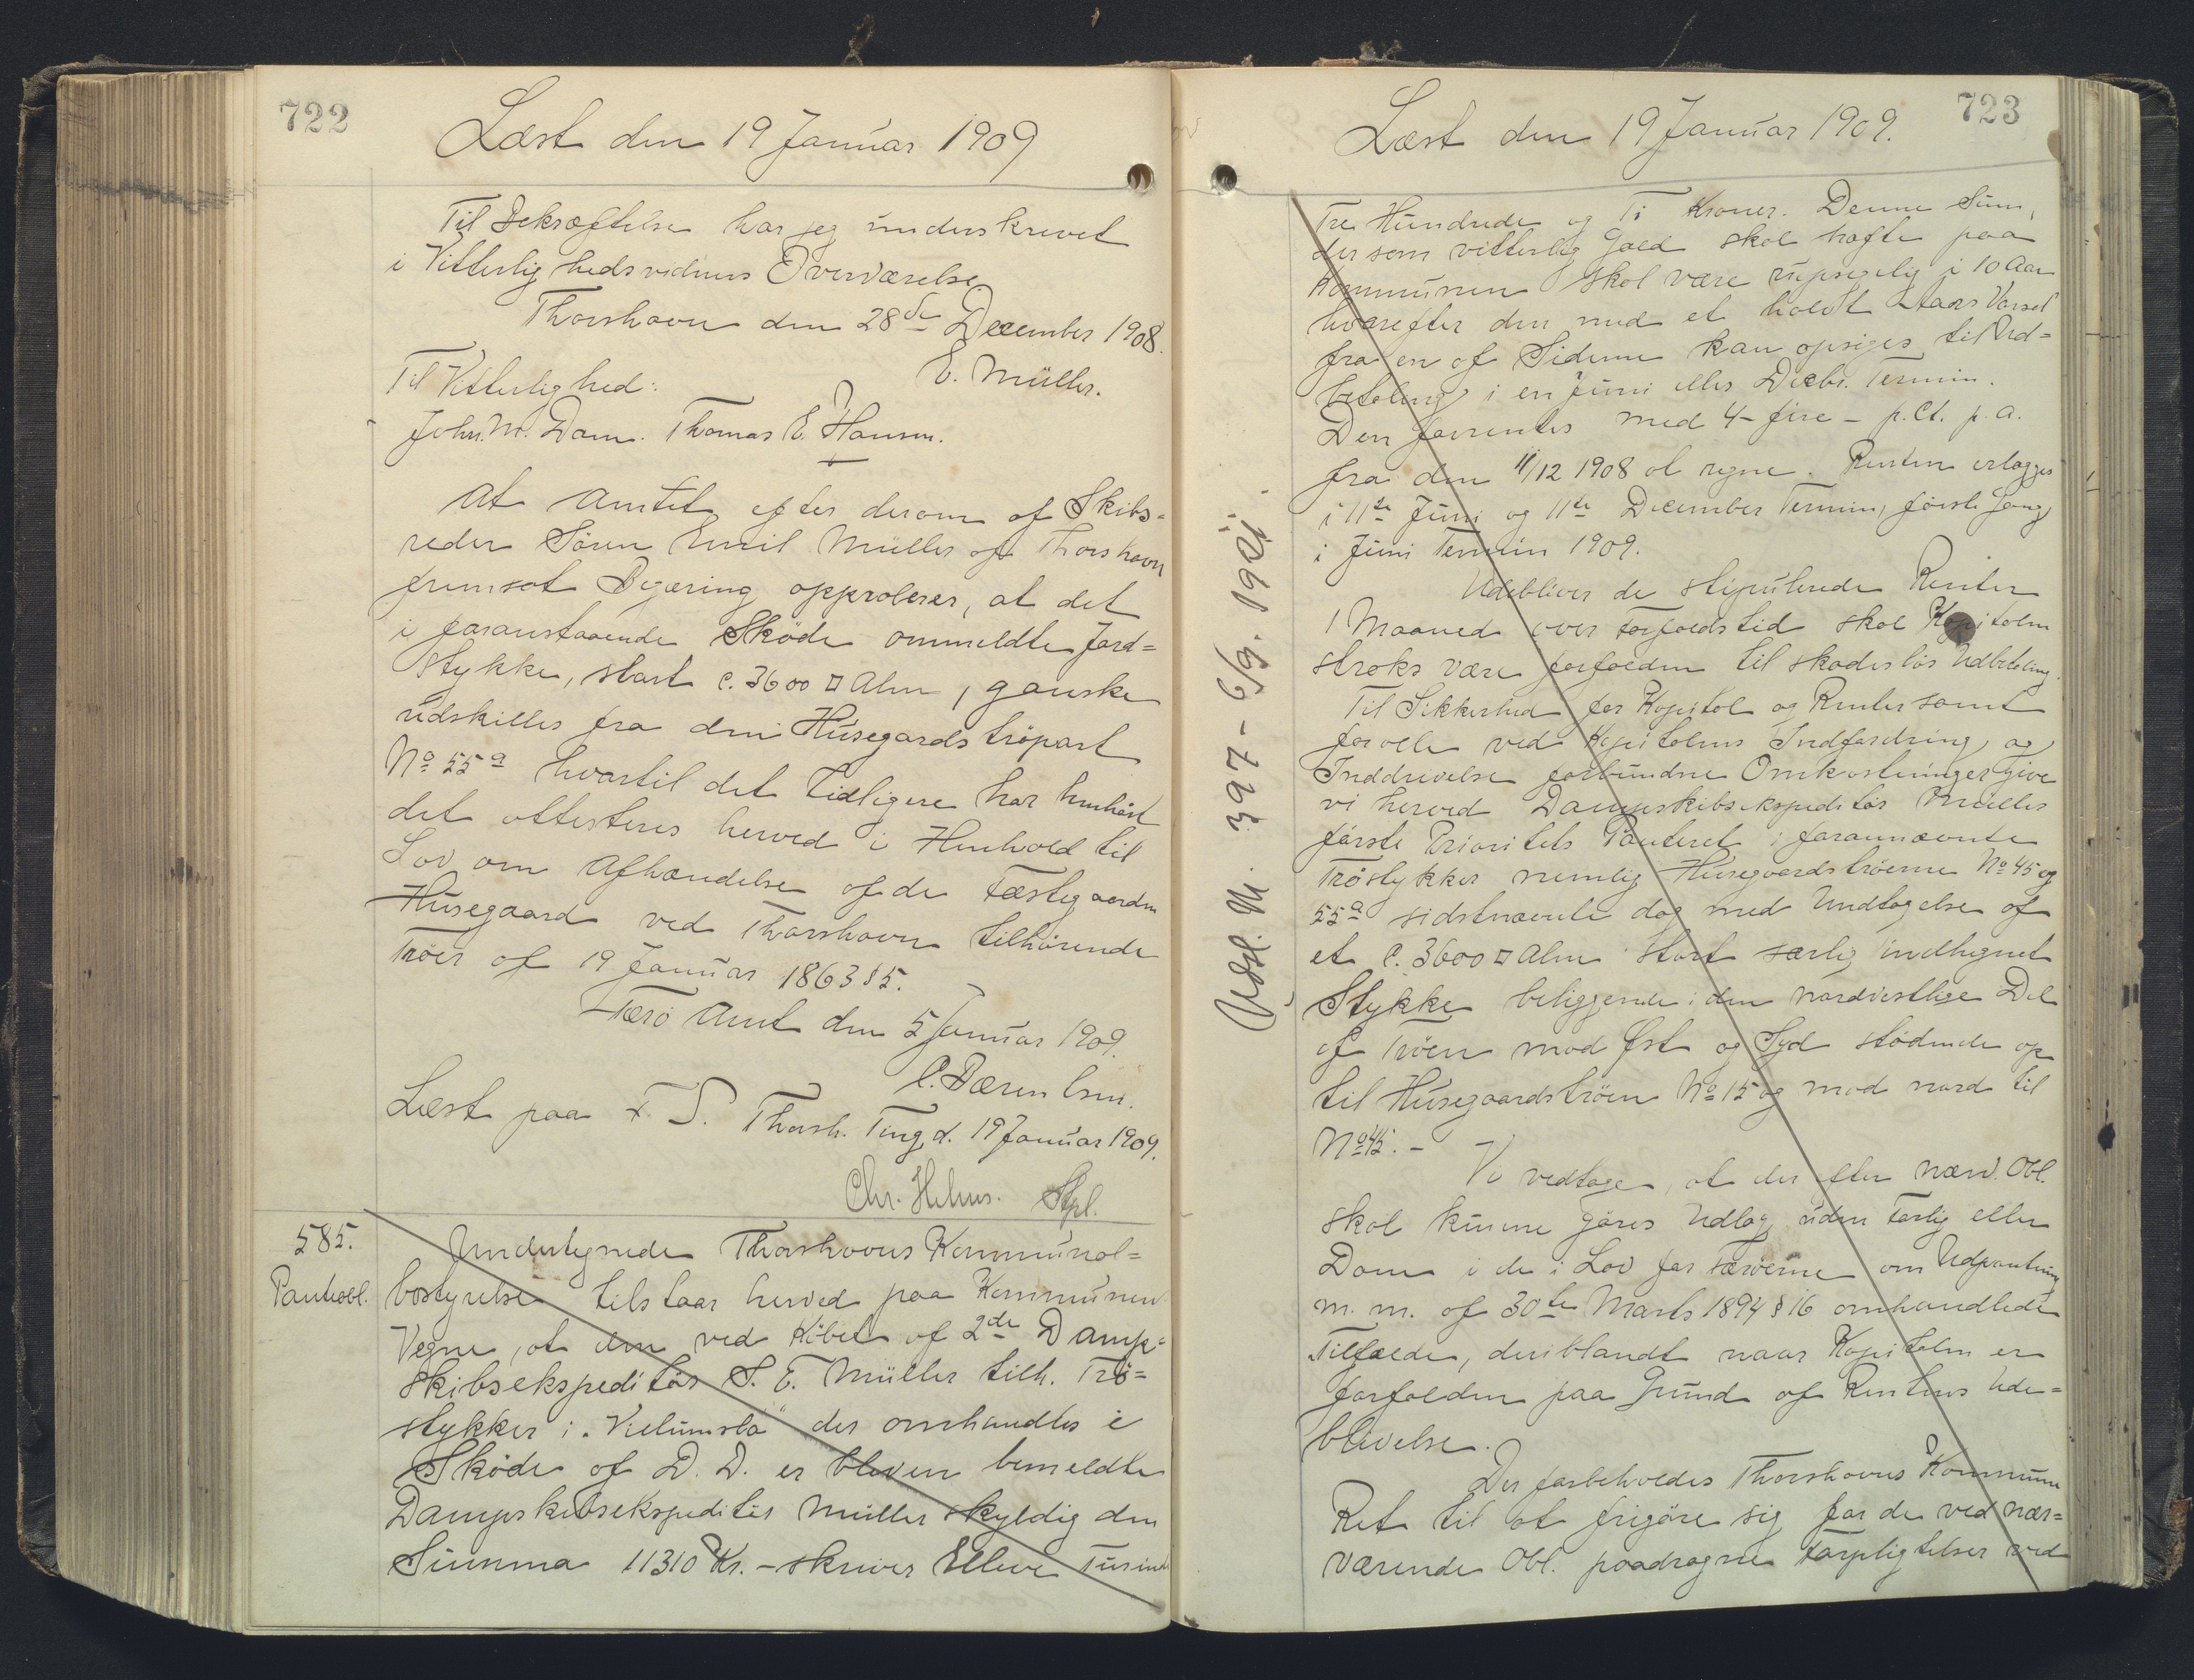 722
Læst den 19 Januar 1909
Til Bekræftelse har jeg underskrevet
i Vitterlighedsvidners Overværelse.
Thorshavn den 28de December 1908.
E. Müller.
Til Vitterlighed:
John. M. Dam. Thomas E. Hansen.
At Amtet efter derom af Skibs=
reder Sören Emil Müller af Thorshavn
fremsat Begæring approberer, at det
i foranstaaende Sköde ommeldte Jord=
stykke, stort c. 3600 □ Alen, ganske
udskilles fra den Husegaards tröpart
No 55a hvortil det tidligere har henhört
det attesteres herved i Henhold til
Lov om Afhændelse af de Fæstegaarden
Husegaard ved Thorshavn tilhörende
Tröer af 19 Januar 1863 § 5.
Færö Amt den 5 Januar 1909.
C. Bærentsen.
Læst paa F. S. Thorsh. Ting d. 19 Januar 1909.
Chr. Helms. Stpl.
585.
Pantobl.
Undertegnede Thorshavns Kommunal=
bestyrelse tilstaar herved paa Kommunens
Vegne, at den ved Köbet af 2de Damp=
skibsekspeditör S. E. Müller tilh. Trö=
stykker i "Vielumsla" der omhandles i
Sköde af D. D. er bleven bemeldte
Dampskibsekspeditör Müller skyldig den
Summa 11310 Kr. - skriver Elleve Tusind
723
Læst den 19 Januar 1909.
Tre Hundrede og Ti Kroner. Denne Sum,
der som vitterlig Gæld skal hæfte paa
Kommunen skal være uopsigelig i 10 Aar
hvorefter den med et halvt Aars Varsel
fra en af Siderne kan opsiges til Ud=
betaling i en Juni eller Decbr. Termin.
Den forrentes med 4 - fire - p.Ct. p.a.
fra den 11/12 1908 at regne. Renten erlægges
i 11te Juni og 11te December Termin, förste Gang
i Juni Termin 1909.
Udebliver de stipulerede Renter
1 Maaned over Forfaldstid skal Kapitalen
straks være forfalden til skadeslös Udbetaling.
Til Sikkerhed for Kapital og Renter samt
for alle ved Kapitalens Indfordring og
Inddrivelse forbundne Omkostninger give
vi herved Dampskibsekspeditör Müller
förste Prioritets Panteret i forannævnte
Tröstykker nemlig Husegaardströerne No 45 og
55a sidstnævnte dog med Undtagelse af
et c. 3600 □ Alen stort særlig indhegnet
Stykke beliggende i den nordvestlige Del
af Tröen mod Øst og Syd stödende op
til Husegaardströen No 15 og mod nord til
No 45. -
Vi vedtage, at der efter nærv. Obl.
skal kunne göres Udlæg uden Forlig eller
Dom i de i Lov for Færöerne om Udpantning
m. m. af 30te Marts 1894 § 16 omhandlede
Tilfælde, deriblandt naar Kapitalen er
forfalden paa Grund af Rentens Ude=
blivelse.
Der forbeholdes Thorshavns Kommune
Ret til at frigöre sig for de ved nær=
værende Obl. paadragne Forpligtelser ved